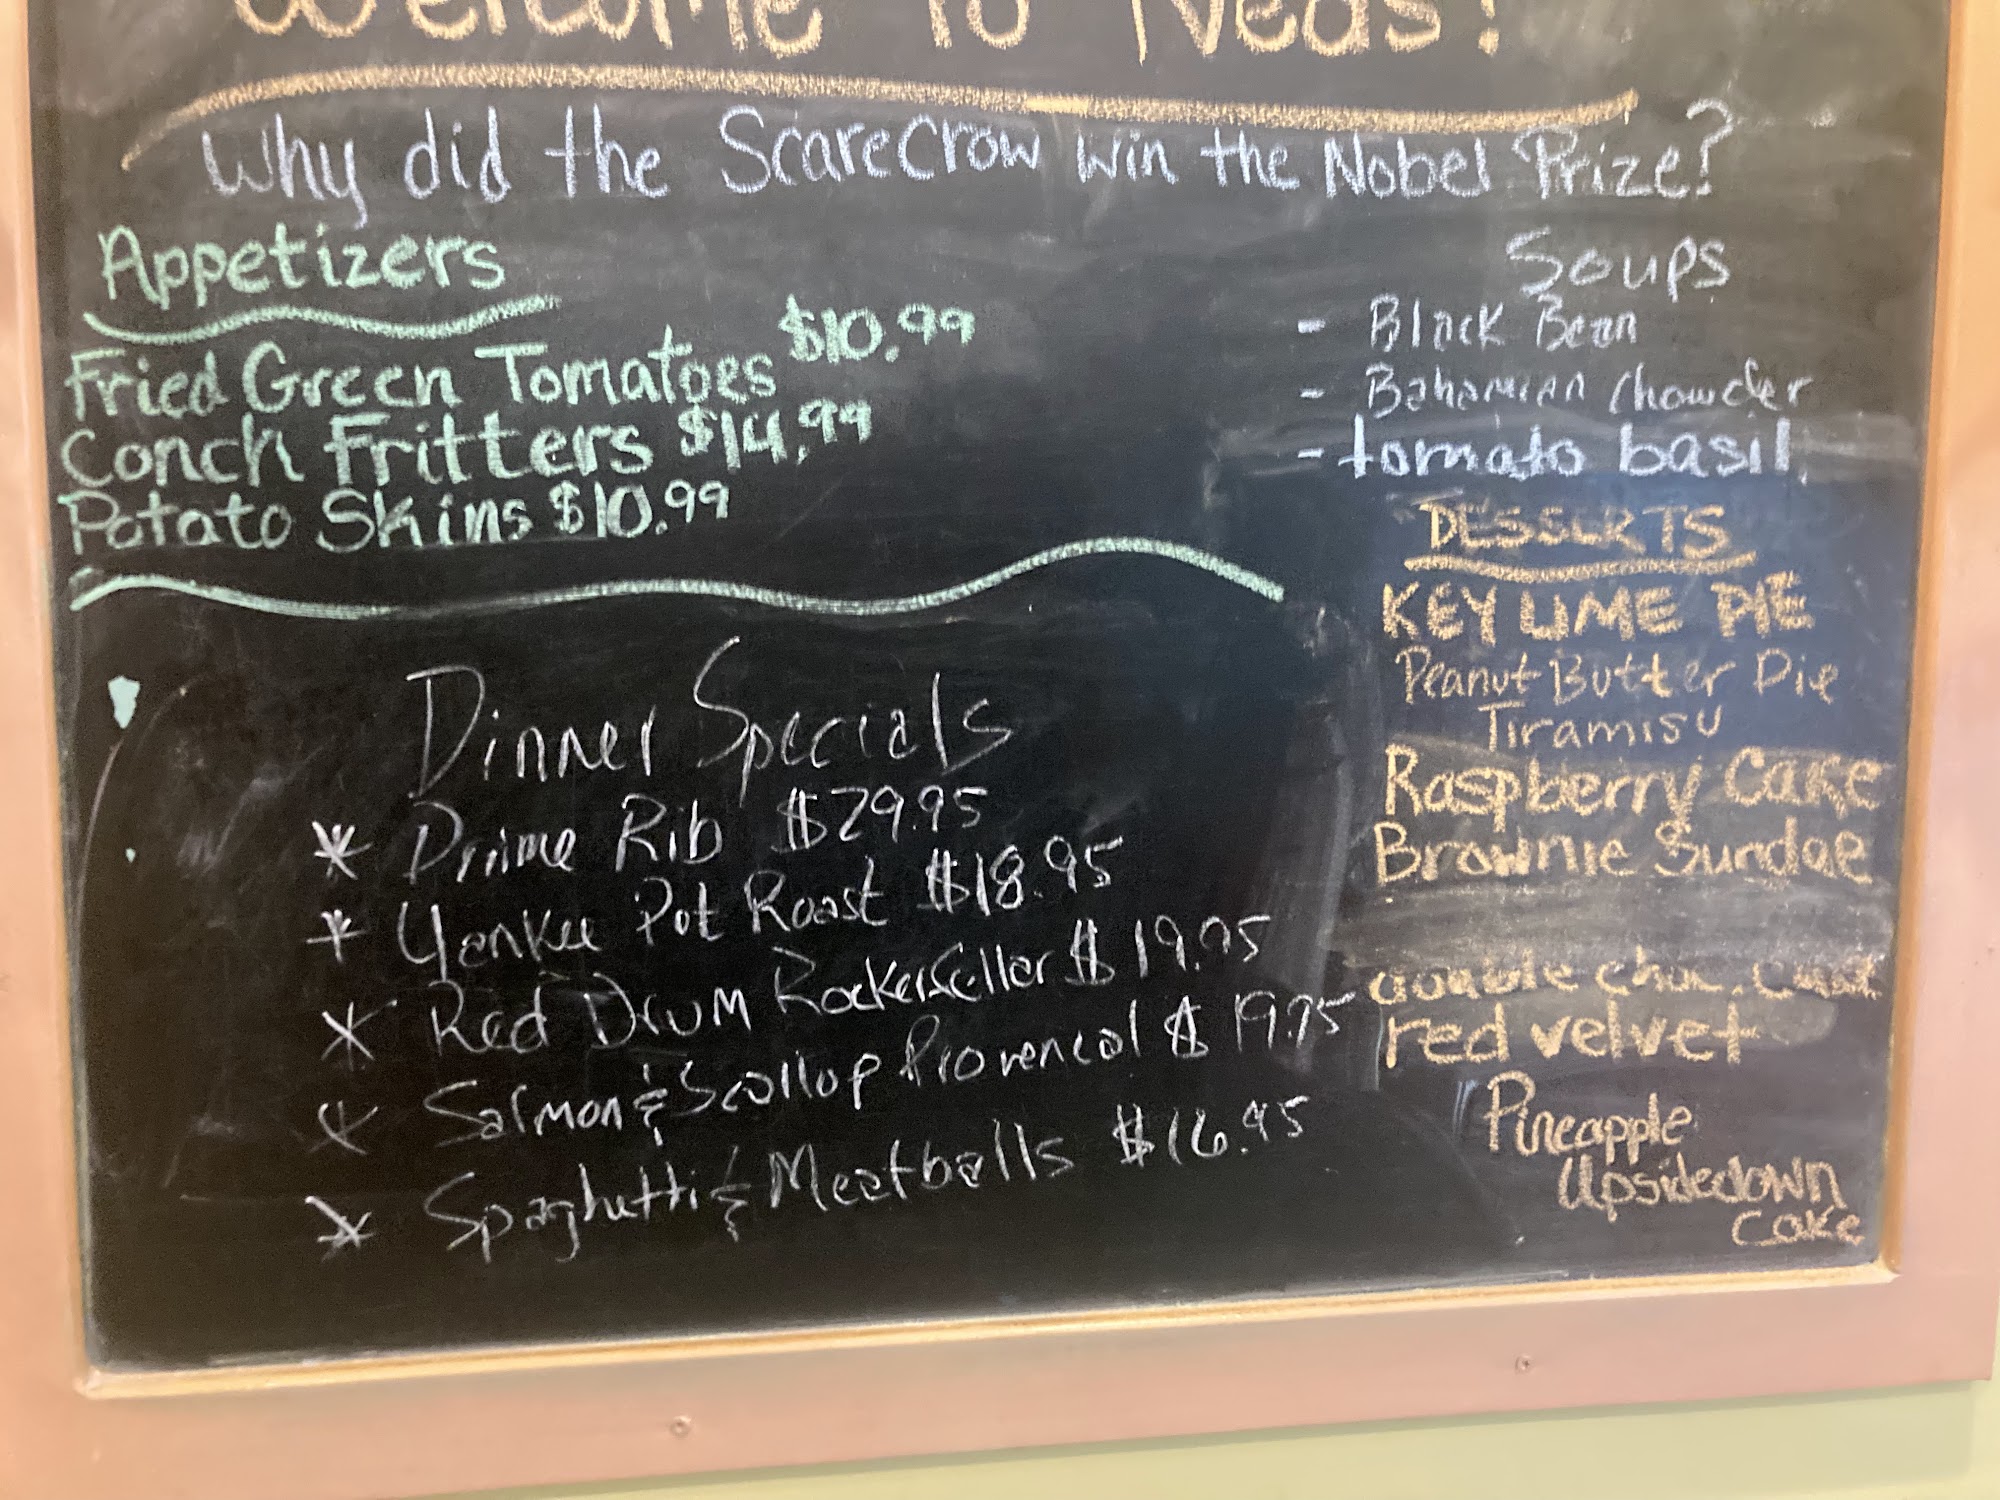 Welcome To Neds!
Why did the ScareCrow win the Nobel Prize?
Appetizers
Fried Green Tomatoes $10.99
Conch Fritters $14.99
Potato Skins $10.99
Soups
- Black Bean
- Bahamian Chowder
- tomato basil
DESSERTS
KEY LIME PIE
Peanut Butter Pie
Tiramisu
Raspberry Cake
Brownie Sundae
double choc.
red velvet
Pineapple
Upsidedown
Cake
Dinner Specials
* Prime Rib $29.95
* Yankee Pot Roast $18.95
* Red Drum Rockerfeller $19.95
* Salmon & Scallop Provencal $19.95
* Spaghetti & Meatballs $16.95